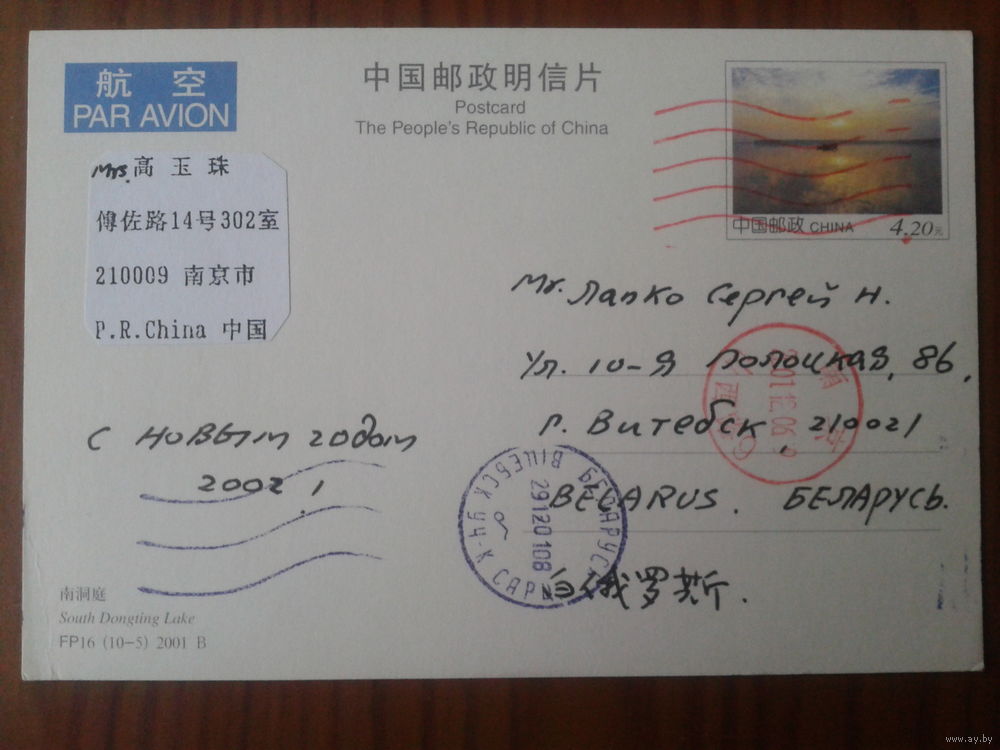 航 空
PAR AVION
中国邮政明信片
Postcard
The People's Republic of China
中国邮政 CHINA 4.20元
Mrs. 高 玉 珠
傅佐路14号302室
210009 南京市
P.R.China 中国
Mr. Лапко Сергей Н.
Ул. 10-я Полоцкая, 86,
г. Витебск, 210021
BELARUS. БЕЛАРУСЬ.
白俄罗斯.
С новым годом
2002!
2001.12.06
БЕЛАРУСЬ
ВIЦЕБСК
29120108
南洞庭
South Dongting Lake
FP16 (10-5) 2001 B
www.ay.by